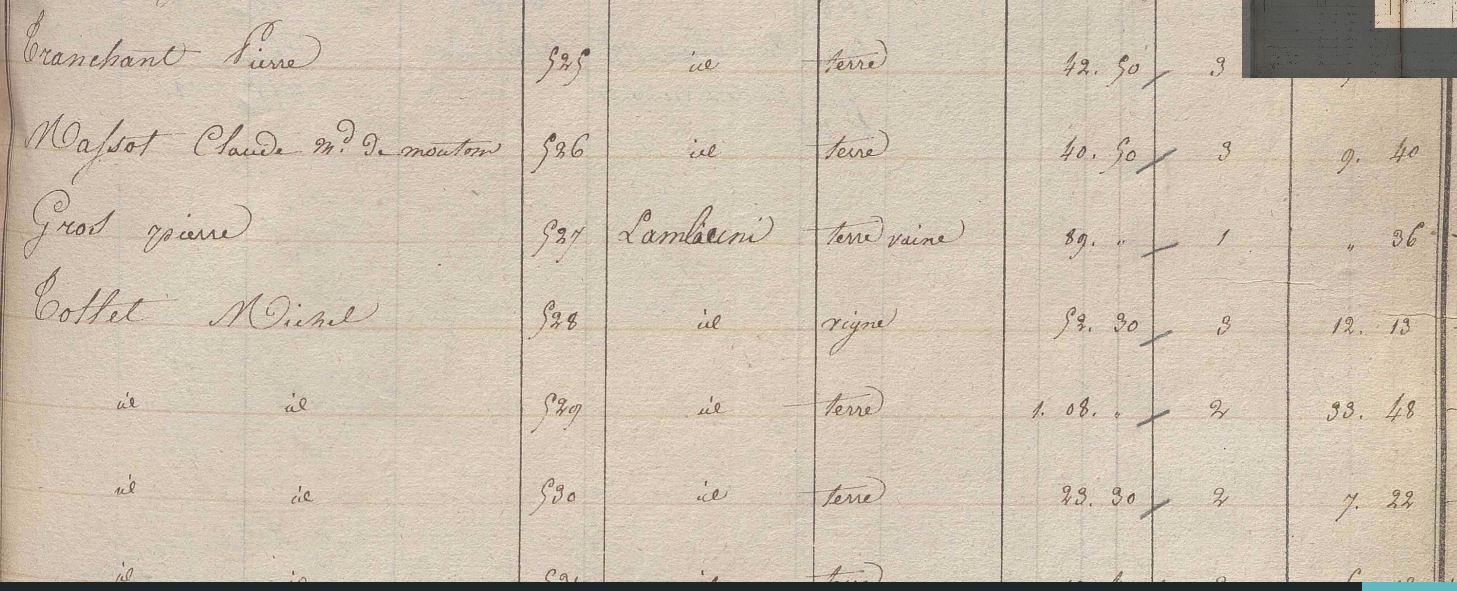 Tranchant Pierre 525 id terre 42. 50 3
Massot Claude md. de mouton 526 id terre 40. 50 3 9. 40
Gros pierre 527 terre vaine 89. " 1 " 36
Tollet Michel 528 id vigne 52. 30 3 12. 13
id id 529 id terre 1. 08. " 2 33. 48
id id 530 id terre 23. 30 2 7. 22